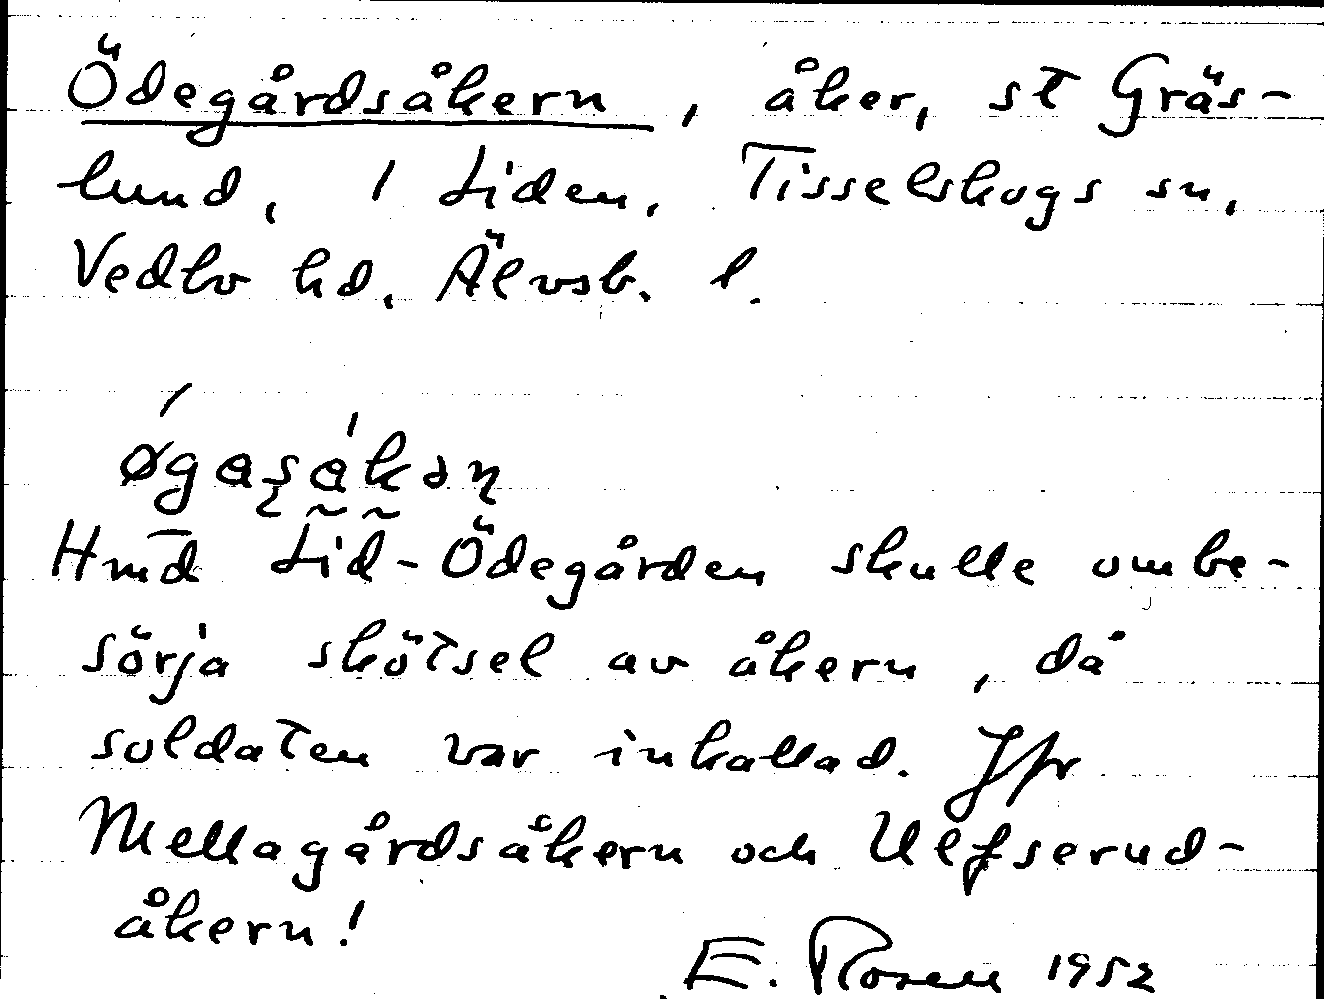 Ödegårdsåkern, åker, st Gräs-
lund, 1 Liden, Tisselskogs sn,
Vedbo hd, Älvsb. l.
Hmd Lid-Ödegården skulle ombe-
sörja skötsel av åkern, då
soldaten var inkallad. Jfr
Mellagårdsåkern och Ulfserud-
åkern!
E. Rosell 1952